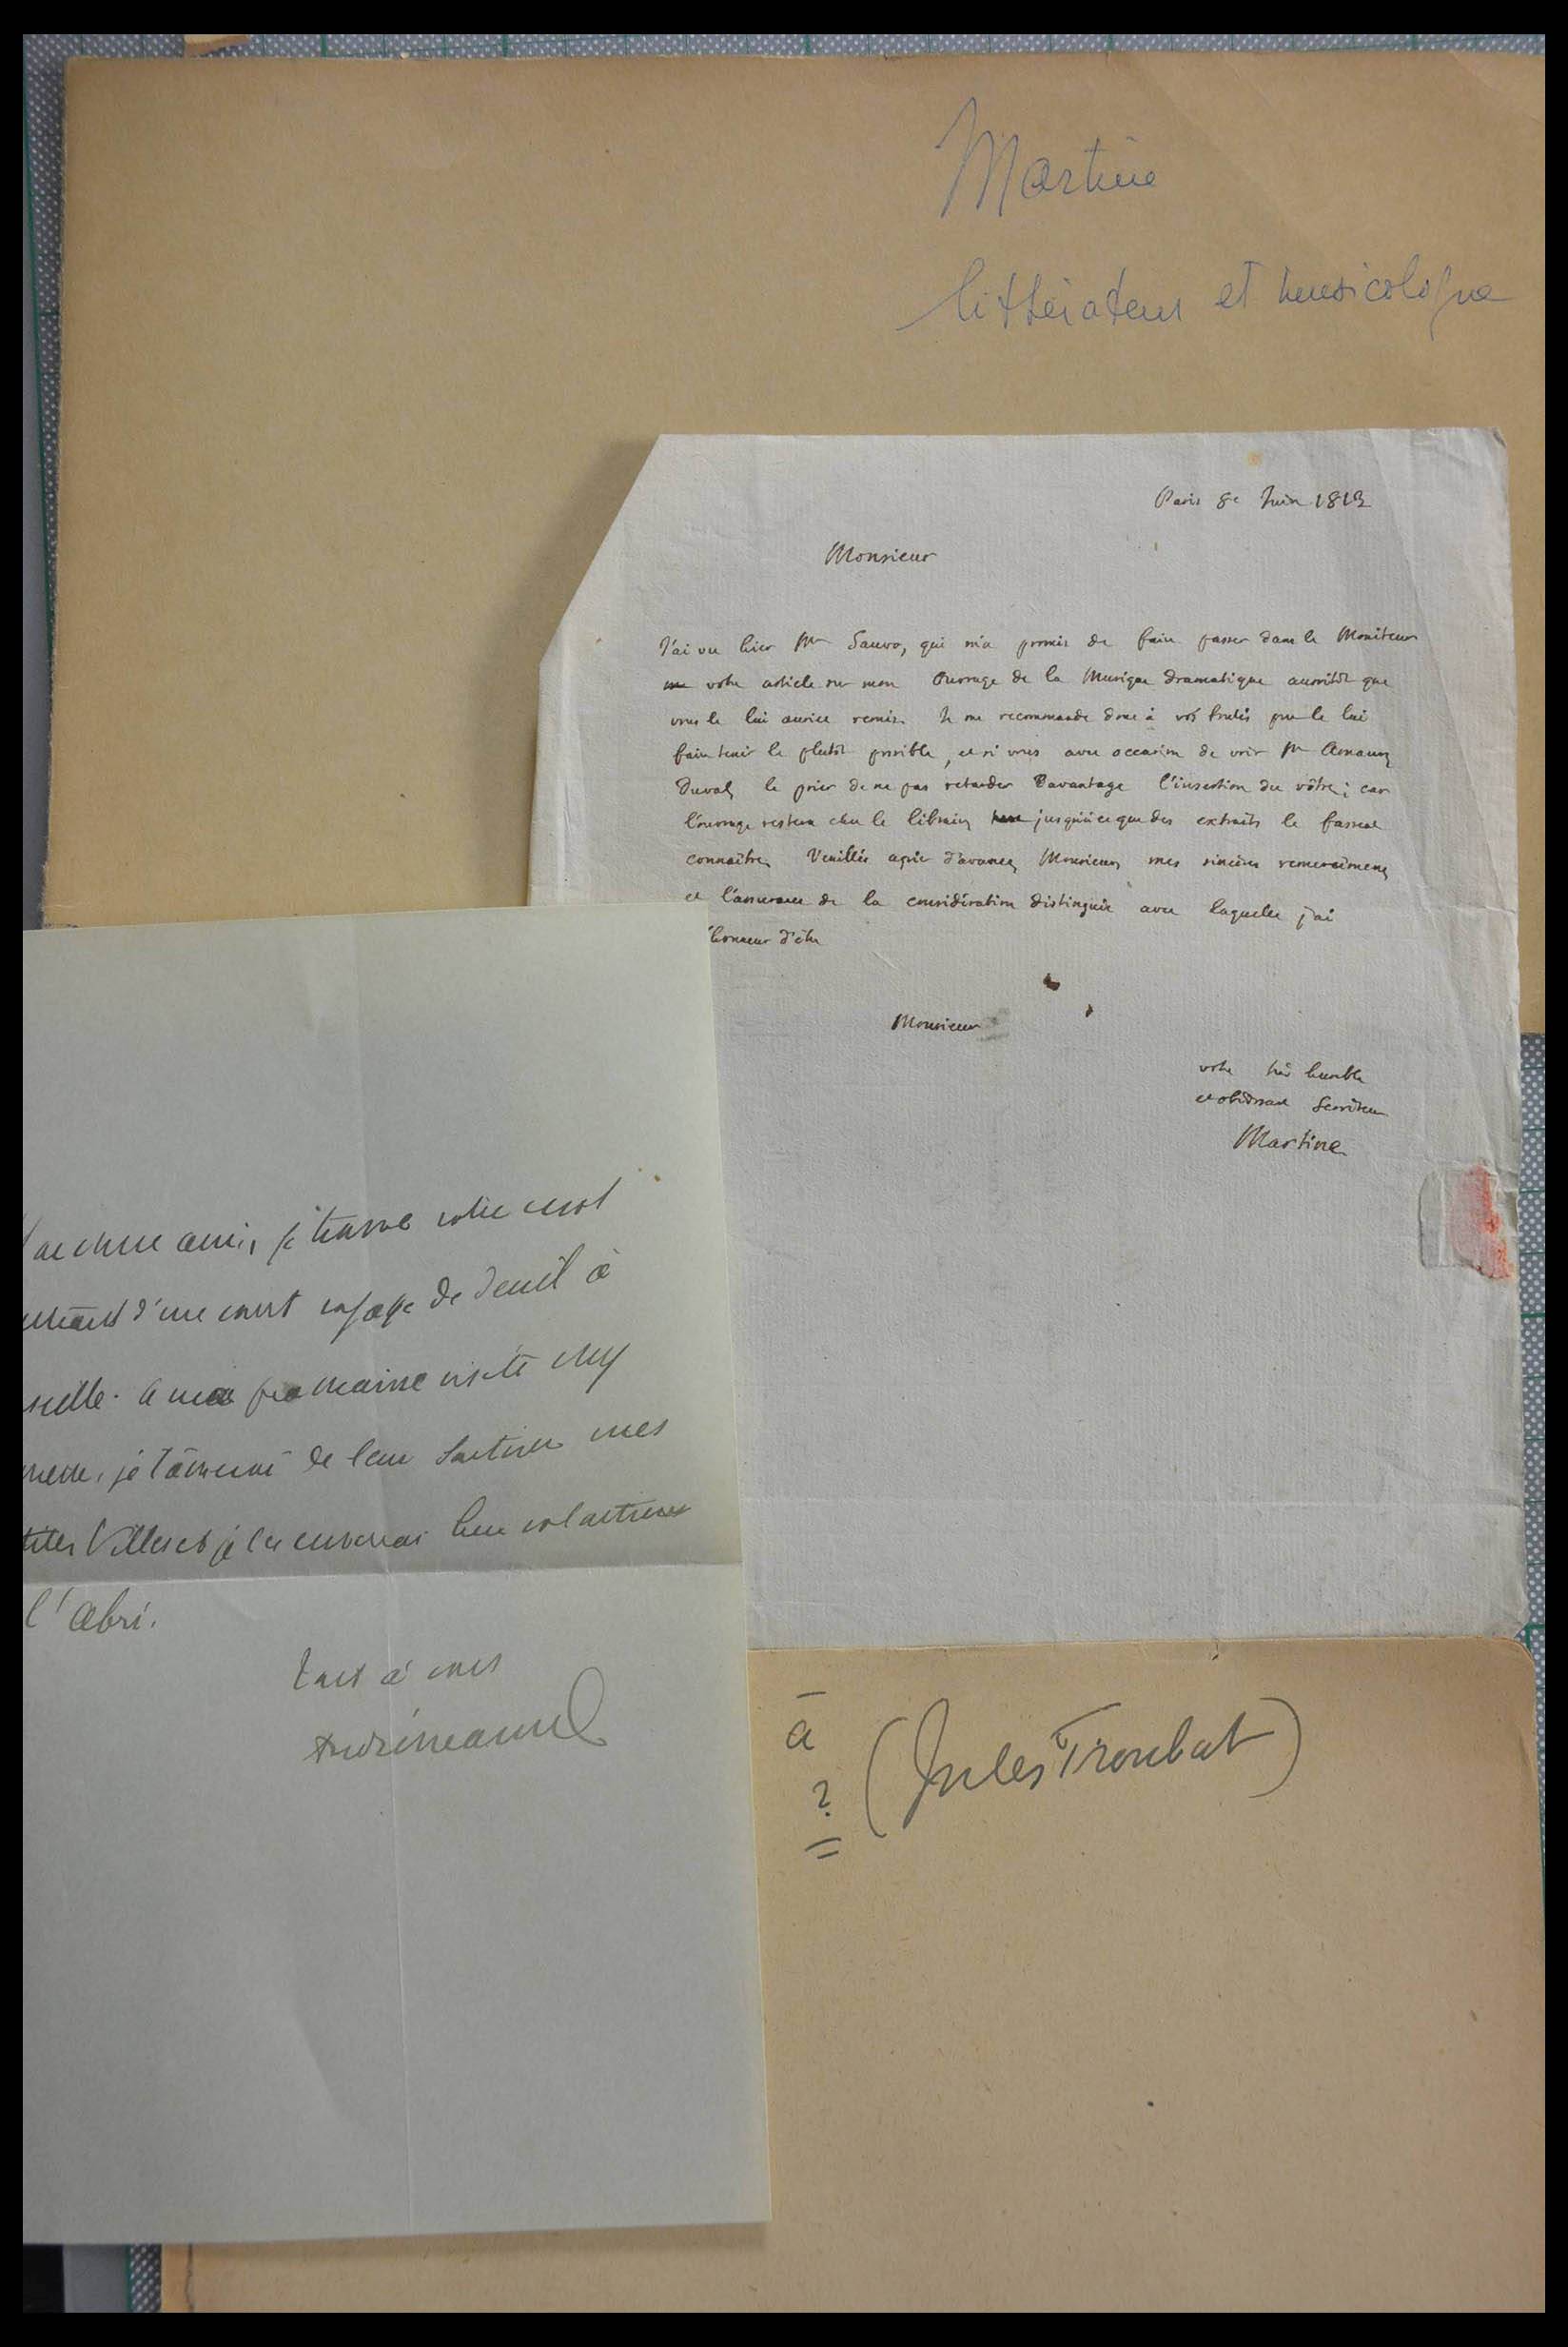 Martine
littérateur et musicologue
Paris 8e Juin 1813
Monsieur
J'ai vu hier Mr Sauvo, qui m'a promis de faire passer dans le Moniteur
votre article sur mon Ouvrage de la Musique dramatique aussitôt que
vous le lui auriez remis. Je me recommande donc à vos bontés pour le lui
faire tenir le plutôt possible, et si vous avez occasion de voir Mr Amaury
Duval, le prier de ne pas retarder davantage l'insertion du vôtre; car
l'ouvrage restera chez le libraire jusqu'à ce que des extraits le fassent
connaître. Veuillés agréer d'avance, Monsieur, mes sincères remercimens
et l'assurance de la considération distinguée avec laquelle j'ai
l'honneur d'être
Monsieur
votre très humble
et obéissant Serviteur
Martine
ami, je trouve votre mot
d'une court voyage de deuil à
A ma prochaine visite chez
je tâcherai de leur soutirer mes
Villes et je les enverrai
l'Abri.
Tout à vous
à
?
(Jules Troubat)